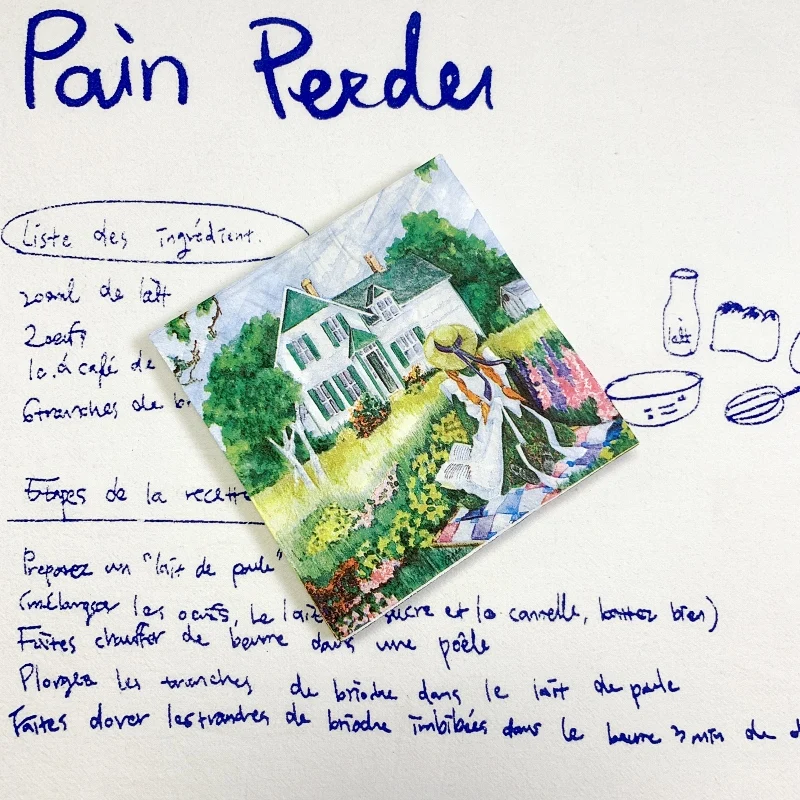 Pain Perdu
Liste des ingrédient.
200ml de lait
2 oeufs
1c.à café de
6 tranches de b
lait
Etapes de la recette
Preparez un "lait de poule"
(mélanger les oeufs, le lait sucre et la cannelle, battez bien)
Faites chauffer de beurre dans une poêle
Plongez les tranches de brioche dans le lait de poule
Faites dorer les tranches de brioche imbibées dans le beurre 3 min de